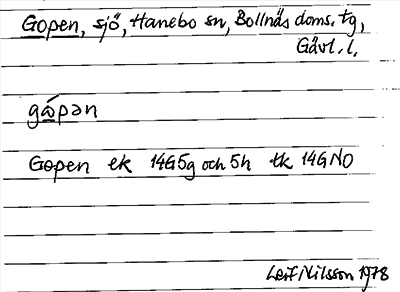 Gopen, sjö, Hanebo sn, Bollnäs doms. tg,
Gävl. l.
gώpən
Gopen ek 14G5g och 5h tk 14GNO
Leif Nilsson 1978